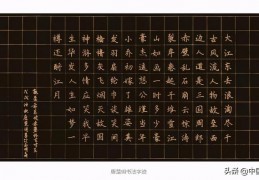 大江东去浪淘尽千
古风流人物故垒西
边人道是三国周郎
赤壁乱石崩云惊涛
裂岸卷起千堆雪江
山如画一时多少
豪杰遥想公瑾当年
小乔初嫁了雄姿英
发羽扇纶巾谈笑间
樯橹灰飞烟灭故国
神游多情应笑我早
生华发人生如梦一
樽还酹江月
头条 @中国